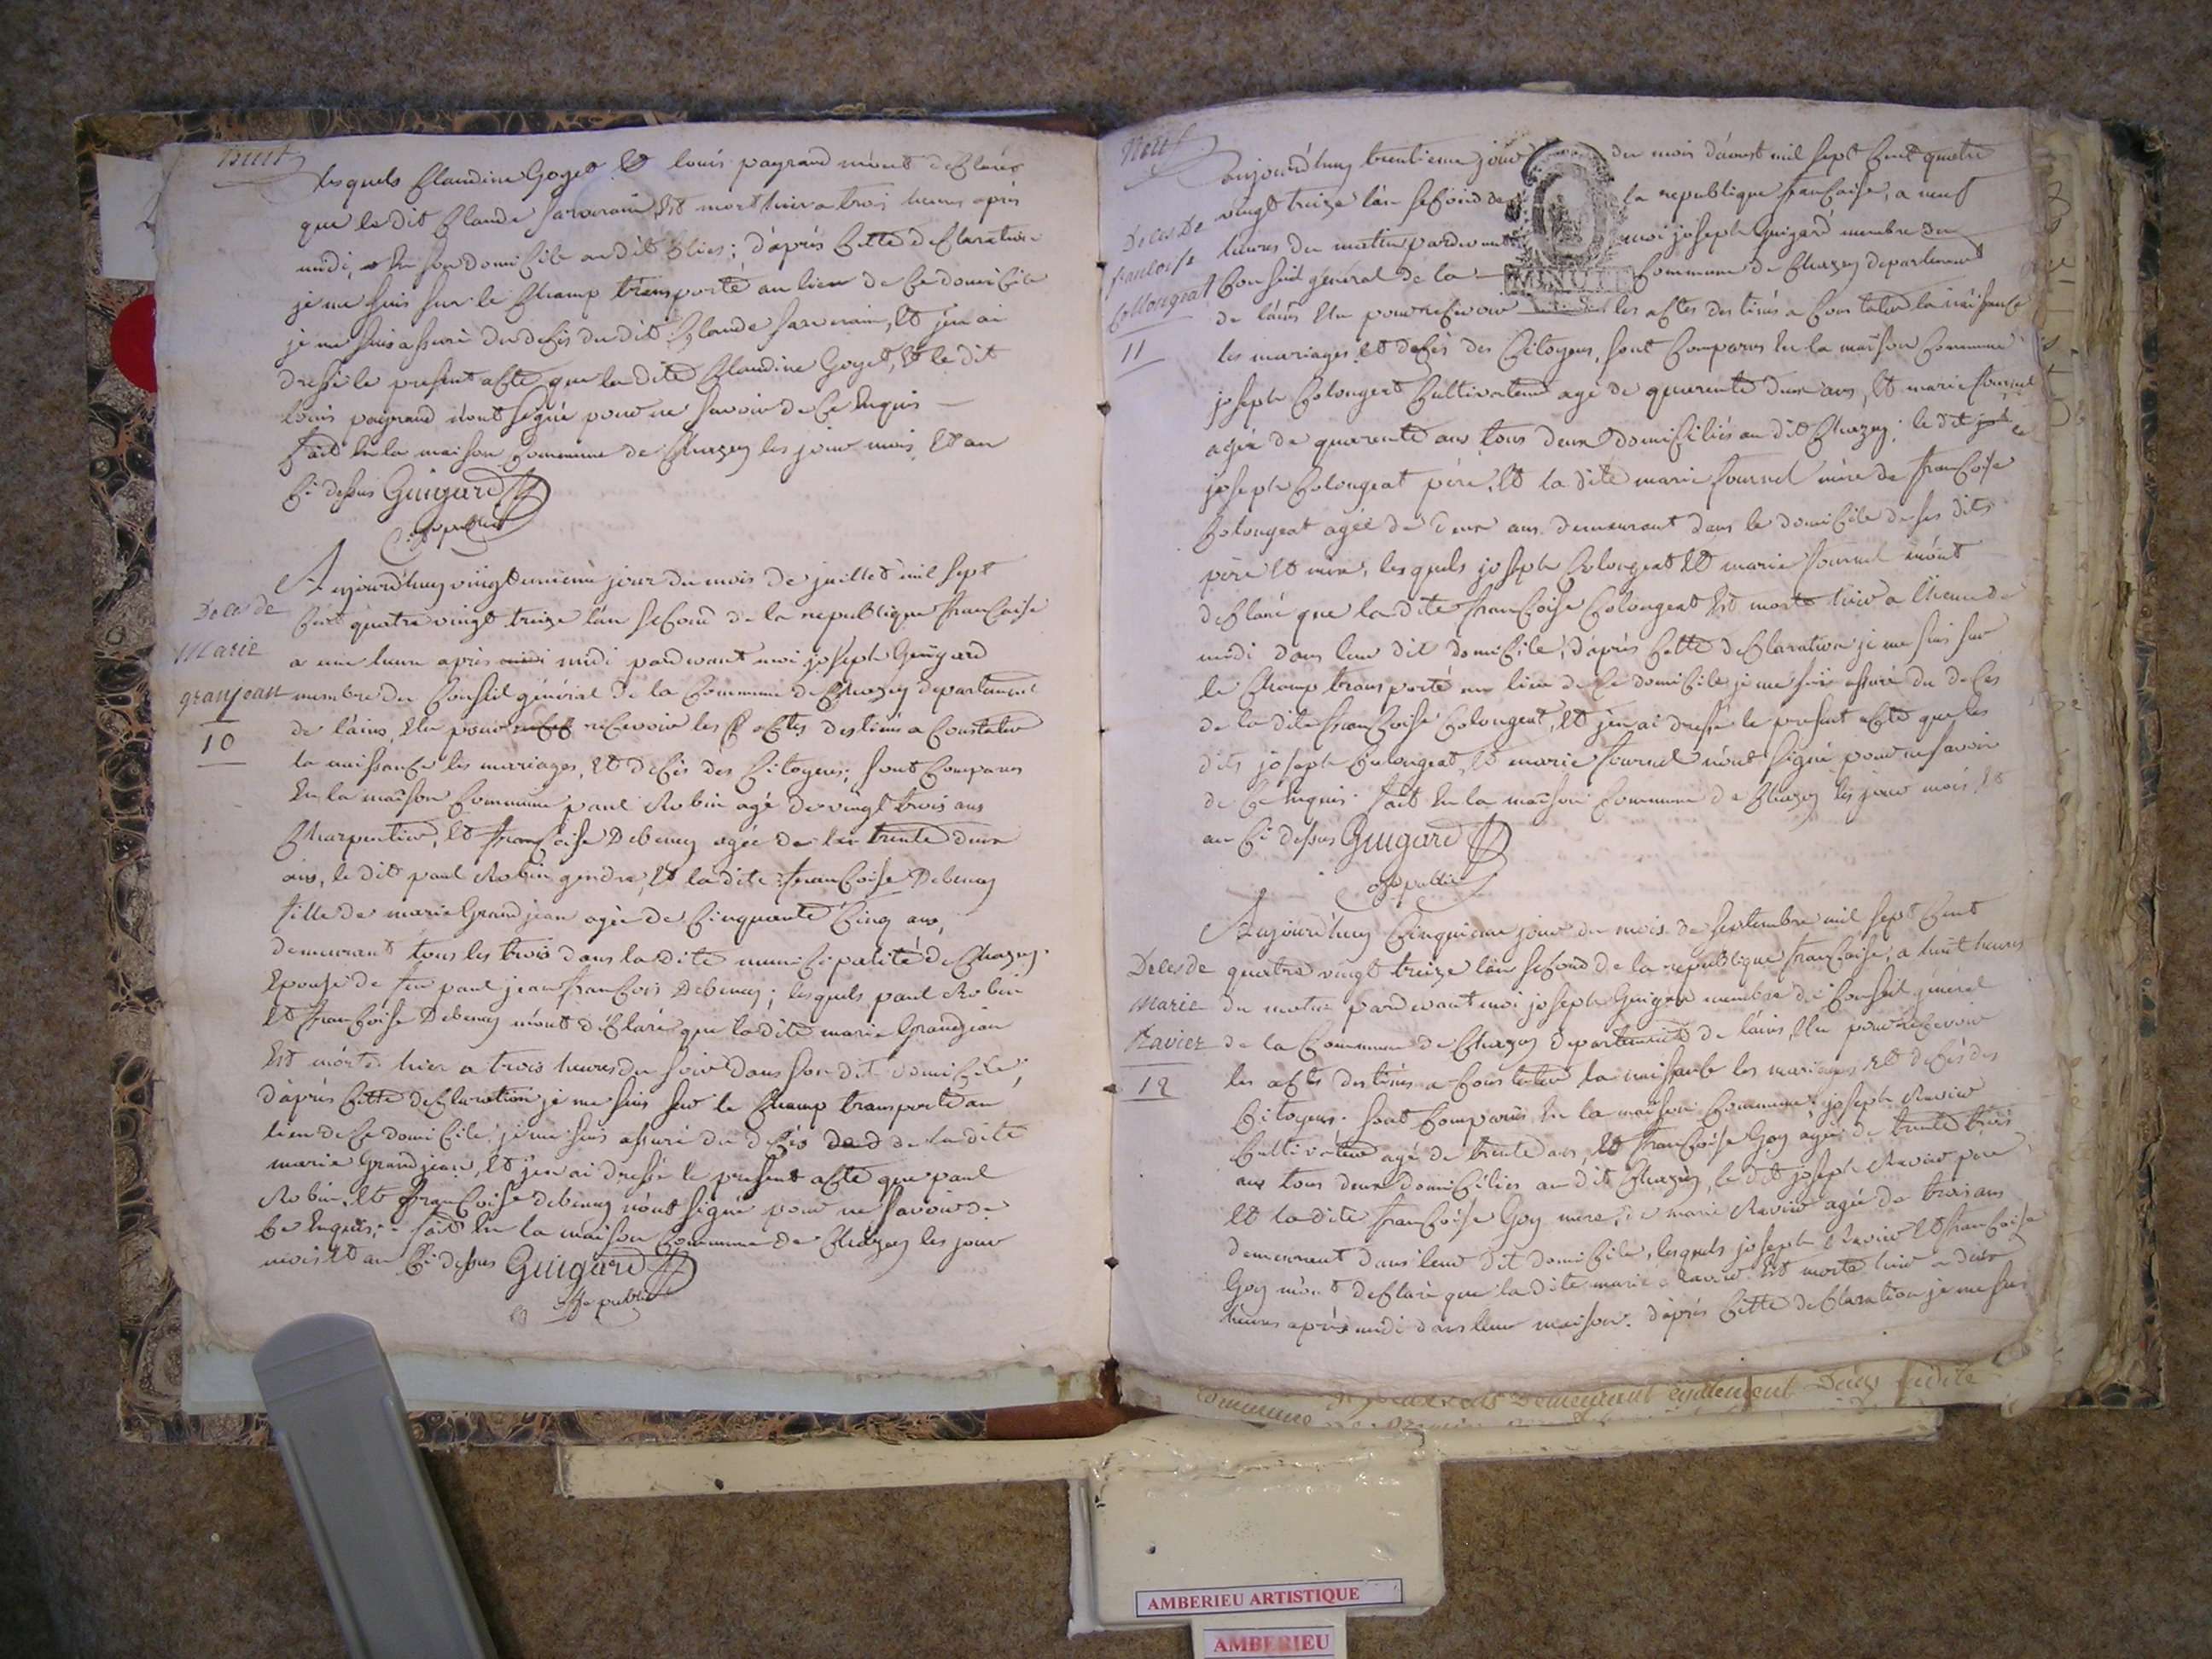 huit
lesquels Claudine Goyet Et louis pagrand m'ont déclaré
que le dit Claude Est mort hier a trois heures après
midi, En son domicile au dit ; d'après Cette déClaration
je me suis sur le Champ transporté au lieu de Ce domicile
je me suis assuré du déCés du dit Claude , Et j'en ai
dressé le present aCte que la dite Claudine Goyet, Et le dit
louis pagrand n'ont signé pour ne savoir de Ce Enquis
fait En la maison Commune de Chazey les jour mois Et an
Ci dessus Guigard
off. public
Deces de
Marie
granjean
10
Aujourd'huy vingt unieme jour du mois de juillet mil sept
Cent quatre vingt treize l'an seCond de la republique franCaise
a une heure après midi midi pardevant moi joseph Guigard
membre du Conseil général de la Commune de Chazey departement
de l'ain, Elu pour reCevoir les aCtes destinés a Constater
la naissanCe les mariages, Et déCés des Citoyens; sont Comparus
En la maison Commune paul Robin agé de vingt trois ans
Charpentier, Et franCoise Debeney agée de trente deux
ans, le dit paul Robin gendre, Et la dite franCoise Debeney
fille de marie Grandjean agée de Cinquante Cinq ans,
demeurant tous les trois dans la dite muniCipalité de Chazey.
Epouse de feu paul jean franCois Debeney; lesquels paul Robin
Et franCoise Debeney m'ont déClaré que la dite marie Grandjean
Est morte hier a trois heures du soir dans son dit domiCile;
d'après Cette deClaration je me suis sur le Champ transporté au
lieu de Ce domiCile, je me suis assuré du déCés de la dite
marie Grandjean, Et j'en ai dressé le present aCte que paul
Robin, Et franCoise debeney n'ont signé pour ne savoir de
Ce Enquis; fait En la maison Commune de Chazey les jour
mois Et an Ci dessus Guigard
off. public
Neuf
aujourd'huy trentieme jour du mois d'aoust mil sept Cent quatre
Deces De
francoise
Collongeat
11
vingt treize l'an seCond de la republique franCaise, a neuf
heures du matin pardevant moi joseph Guigard membre du
Conseil général de la Commune de Chazey departement
MINUTE
de l'ain Elu pour reCevoir les aCtes destinés a Constater la naissanCe
les mariages, Et déCés des Citoyens, sont Comparus En la maison Commune
joseph Colongeat Cultivateur agé de quarente deux ans, Et marie fournel
agée de quarente ans tous deux domiCiliés au dit Chazey; le dit
joseph Colongeat père, Et la dite marie fournel mère de franCoise
Colongeat agée de deux ans demeurant dans le domiCile de ses dits
père Et mère, lesquels joseph Colongeat Et marie fournel m'ont
deClaré que la dite franCoise Colongeat Est morte hier a l'heure de
midi dans leur dit domiCile; d'après Cette deClaration je me suis sur
le Champ transporté au lieu de Ce domiCile je me suis assuré du deCes
de la dite franCoise Colongeat, Et j'en ai dressé le present aCte que les
dits joseph Colongeat, Et marie fournel n'ont signé pour ne savoir
de Ce Enquis. fait En la maison Commune de Chazey les jour mois Et
an Ci dessus Guigard
off public
Deces de
Marie
Ravier
12
Aujourd'huy Cinquieme jour du mois de septembre mil sept Cent
quatre vingt treize l'an seCond de la republique franCaise, a huit heures
du matin pardevant moi joseph Guigard membre du Conseil général
de la Commune de Chazey departement de l'ain, Elu pour reCevoir
les aCtes destinés a Constater la naissanCe les mariages Et deCés des
Citoyens. sont Comparus En la maison Commune, joseph Ravier
Cultivateur agé de trente ans, Et franCoise Goy agée de trente trois
ans tous deux domiCiliés au dit Chazey, le dit joseph Ravier père
Et la dite franCoise Goy mere, de marie Ravier agée de trois ans
demeurant dans leur dit domiCile, lesquels joseph Ravier Et franCoise
Goy m'ont deClaré que la dite marie Ravier Est morte hier a deux
heures après midi dans leur maison. d'après Cette deClaration je me suis
demeurant également Dans ladite
Commune
AMBERIEU ARTISTIQUE
AMBERIEU